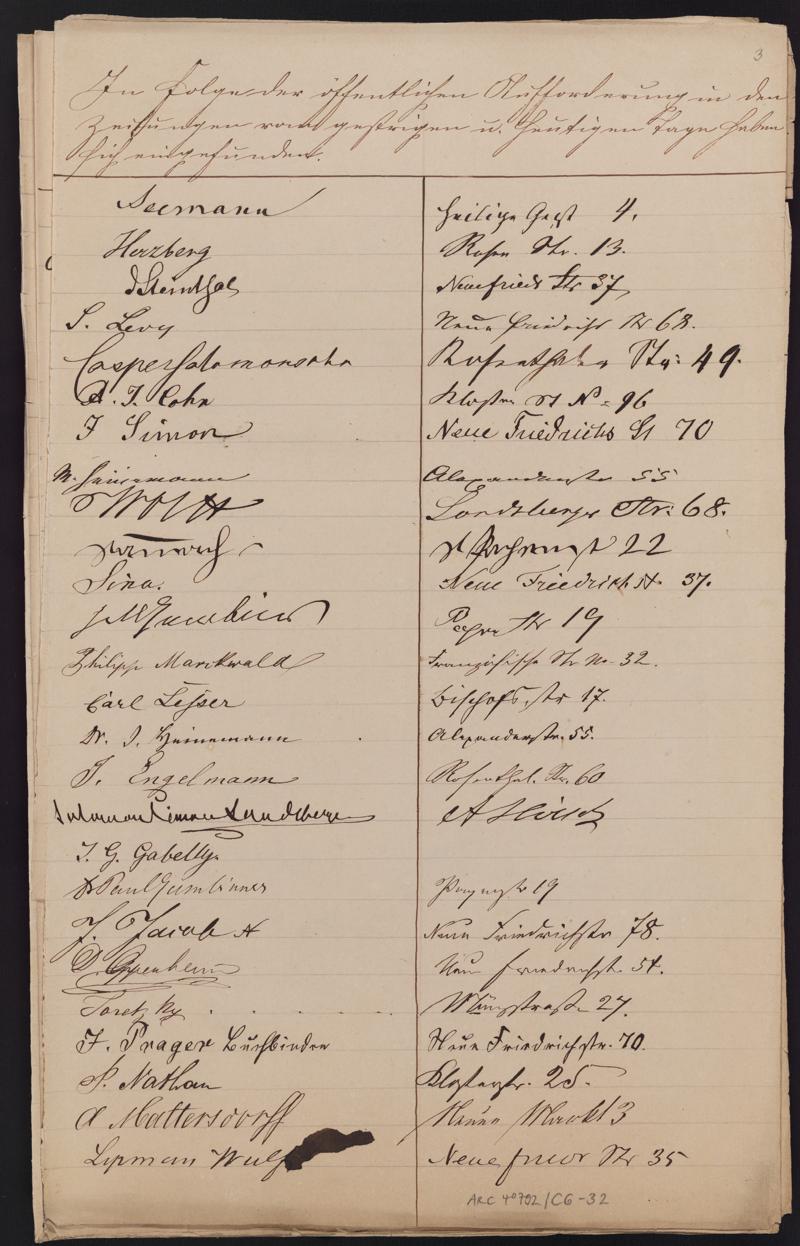 3
In Folge der öffentlichen Aufforderung in den
Zeitungen vom gestrigen u. heutigen Tage haben
sich eingefunden.
Seemann Heilige Geist 4.
Herzberg Rosen Str. 13.
Steinthal Neue Friedr Str 37
S. Levy Neue Friedrichs Str 68.
Casper Salomonsohn Rosenthaler Str: 49.
A. J. Cohn Kloster St No = 96
J Simon Neue Friedrichs St 70
M. Heinemann Alexanderstr 55
Wolff Landsberger Str: 68.
22
Neue Friedrich St. 37.
Papen Str 19
Philipp Marckwald Französische Str No. 32.
Carl Lesser Bischofs str 17.
Dr. J. Heinemann Alexanderstr. 55.
J. Engelmann Rosenthal. Str. 60
Salomon Simon Landsberger A Hirsch
J. G. Gabelly
Dr Paul Gumbinner Papenstr 19
J. Jacob Neue Friedrichstr 78.
D. Oppenheim Neue Friedrichst. 54.
Toretzky Münzstrasse 27.
J. Prager Buchbinder Neue Friedrichstr. 70.
S. Nathan Klosterstr. 25.
A Mattersdorff Neuen Markt 3
Lipman Wulf Neue Str 35
ARC 4°792/C6-32